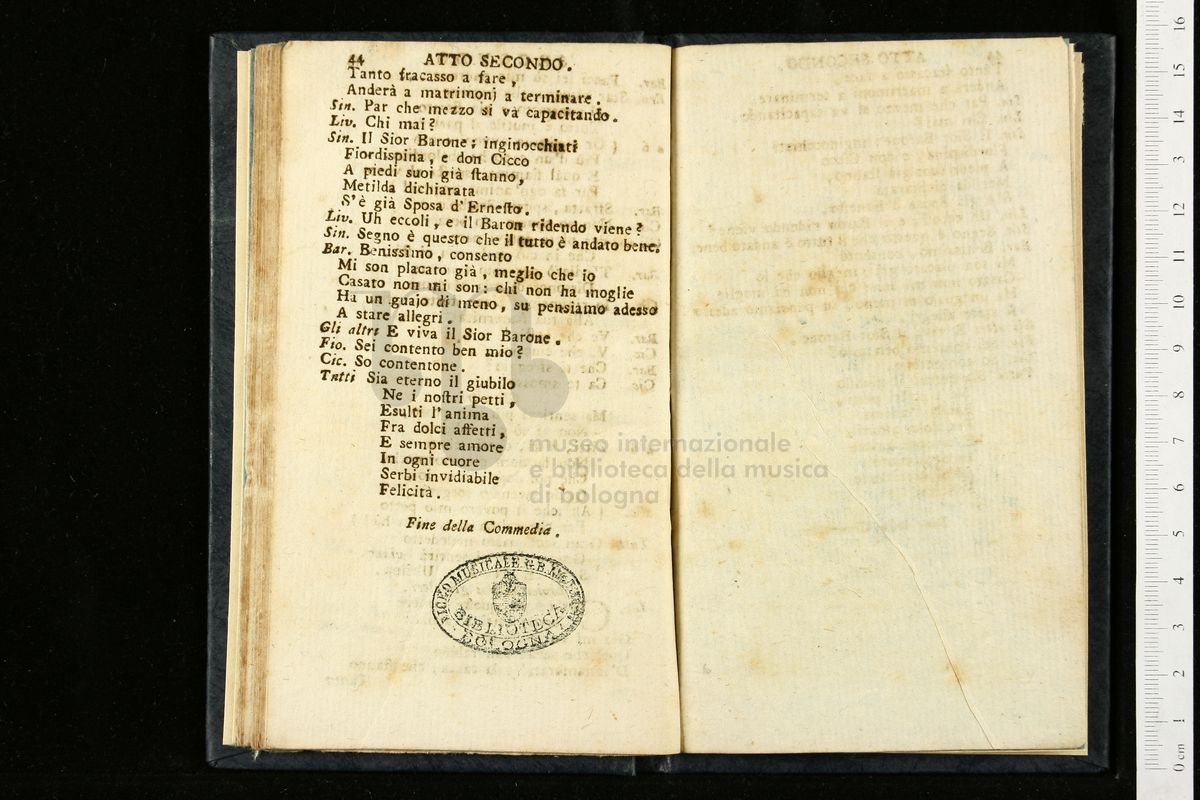 44 ATTO SECONDO.
Tanto fracasso a fare,
Anderà a matrimonj a terminare.
Sin. Par che mezzo si và capacitando.
Liv. Chi mai?
Sin. Il Sior Barone; inginocchiati
Fiordispina, e don Cicco
A piedi suoi già ſtanno,
Metilda dichiarata
S'è già Sposa d'Erneſto.
Liv. Uh eccoli, e il Baron ridendo viene?
Sin. Segno è questo che il tutto è andato bene.
Bar. Benissimo, consento
Mi son placato già, meglio che io
Casato non mi son: chi non ha moglie
Ha un guajo di meno, su pensiamo adesso
A stare allegri.
Gli altri E viva il Sior Barone.
Fio. Sei contento ben mio?
Cic. So contentone.
Tutti Sia eterno il giubilo
Ne i noſtri petti,
Esulti l'anima
Fra dolci affetti,
E sempre amore
In ogni cuore
Serbi invidiabile
Felicità.
Fine della Commedia.
LICEO MUSICALE G. B.
BIBLIOTECA
BOLOGNA
museo internazionale
e biblioteca della musica
di bologna
0 cm 1 2 3 4 5 6 7 8 9 10 11 12 13 14 15 16